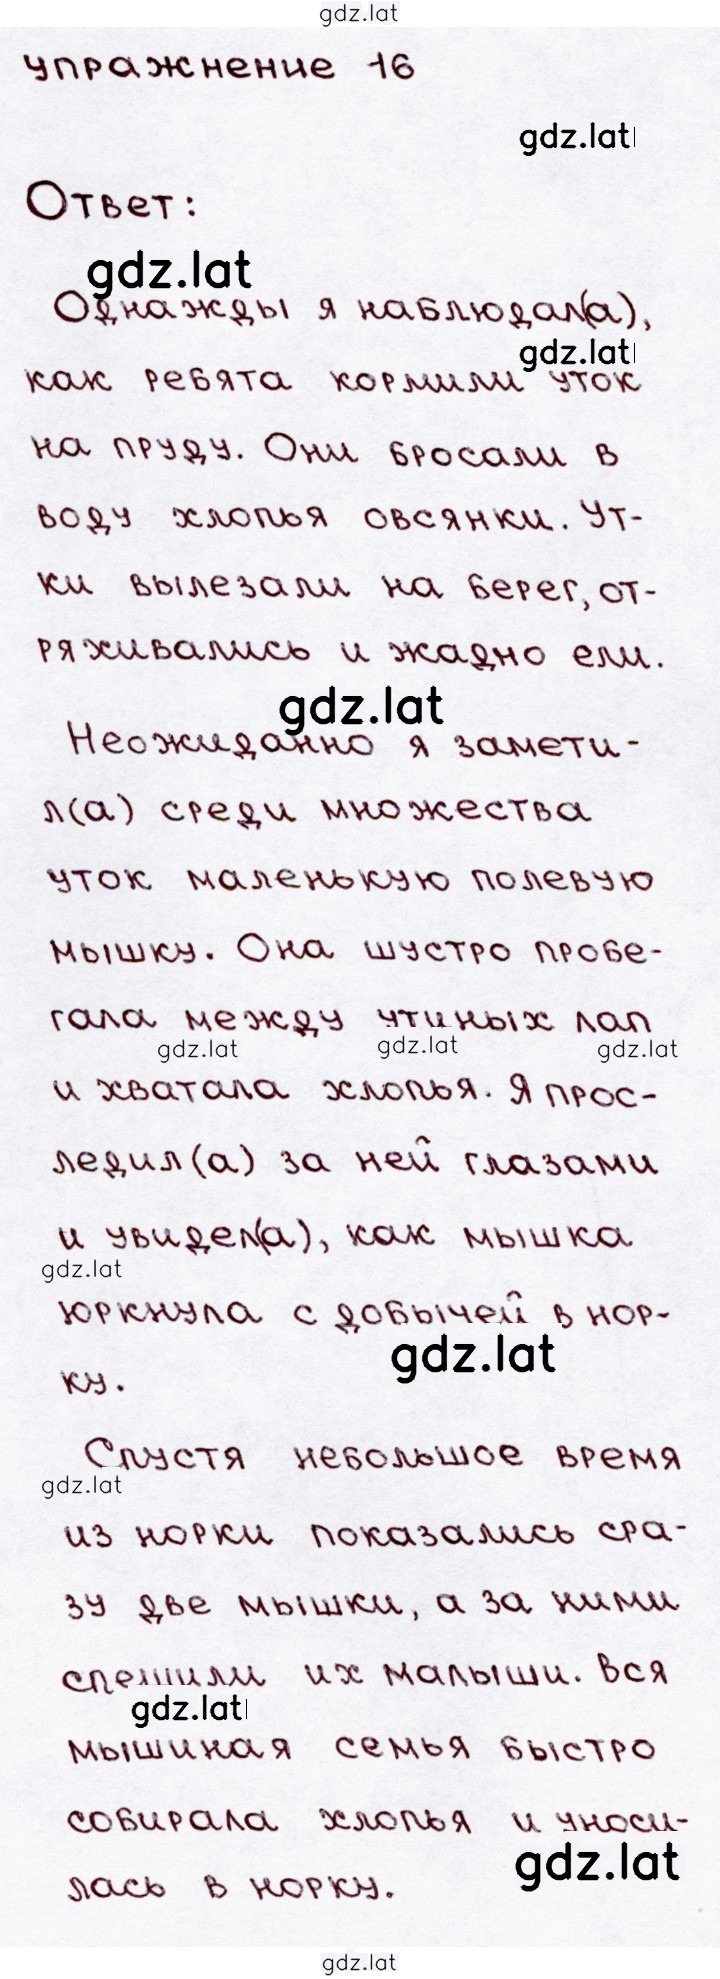 gdz.lat
упражнение 16
gdz.lat
Ответ:
gdz.lat
Однажды я наблюдал(а),
gdz.lat
как ребята кормили уток
на пруду. Они бросали в
воду хлопья овсянки. Ут-
ки вылезали на берег, от-
ряхивались и жадно ели.
gdz.lat
Неожиданно я замети-
л(а) среди множества
уток маленькую полевую
мышку. Она шустро пробе-
гала между утиных лап
gdz.lat gdz.lat gdz.lat
и хватала хлопья. Я прос-
ледил(а) за ней глазами
и увидел(а), как мышка
gdz.lat
юркнула с добычей в нор-
gdz.lat
ку.
Спустя небольшое время
gdz.lat
из норки показались сра-
зу две мышки, а за ними
спешили их малыши. Вся
gdz.lat
мышиная семья быстро
собирала хлопья и уноси-
gdz.lat
лась в норку.
gdz.lat